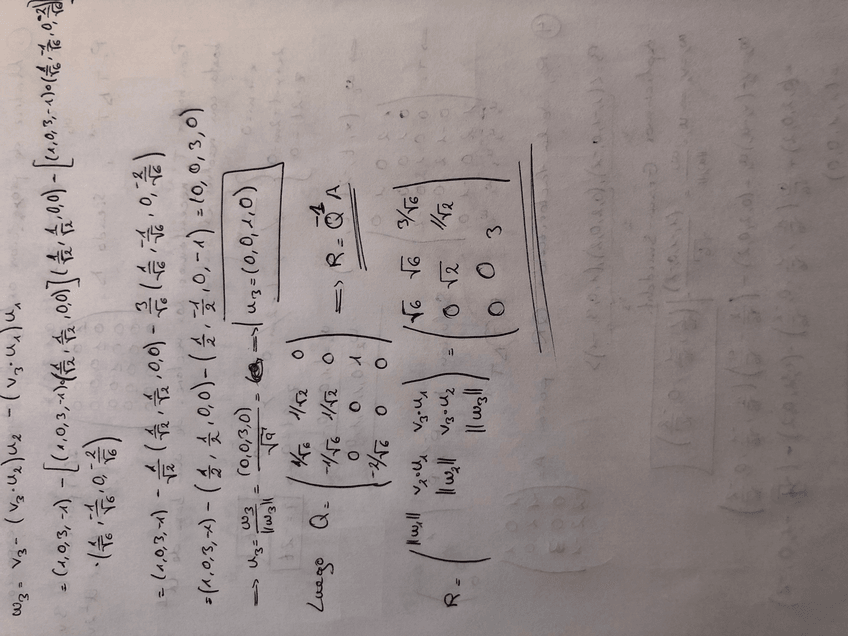 w₃ = v₃ - (v₃·u₂)u₂ - (v₃·u₁)u₁
= (1,0,3,-1) - [(1,0,3,-1)•(1/√2, 1/√2, 0,0)](1/√2, 1/√2, 0,0) - [(1,0,3,-1)•(1/√6, -1/√6, 0, -2/√6)]
·(1/√6, -1/√6, 0, -2/√6)
= (1,0,3,-1) - 1/√2 (1/√2, 1/√2, 0,0) - 3/√6 (1/√6, -1/√6, 0, -2/√6)
= (1,0,3,-1) - (1/2, 1/2, 0,0) - (1/2, -1/2, 0, -1) = (0,0,3,0)
⟹ u₃ = w₃/||w₃|| = (0,0,3,0)/√9 = ⟹ u₃ = (0,0,1,0)
Luego Q = ( 1/√6 1/√2 0
-1/√6 1/√2 0
0 0 1
-2/√6 0 0 ) ⟹ R = Q⁻¹A
R = ( ||w₁|| v₂•u₁ v₃•u₁
||w₂|| v₃•u₂
||w₃|| ) = ( √6 √6 3/√6
0 √2 1/√2
0 0 3 )